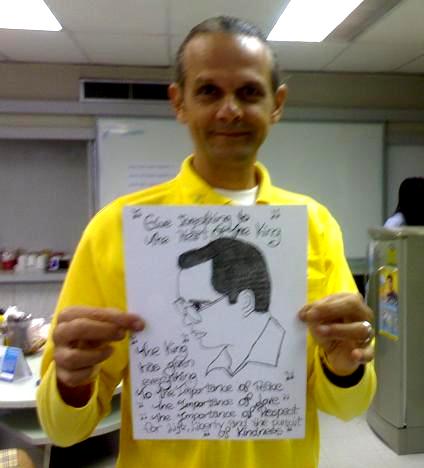 " Give Something to "
the Heart of the King
"The King
has given
everything "
to the Importance of Peace "
" The Importance of Love "
" The Importance of Respect "
for Life, Liberty and the pursuit
" of Kindness "